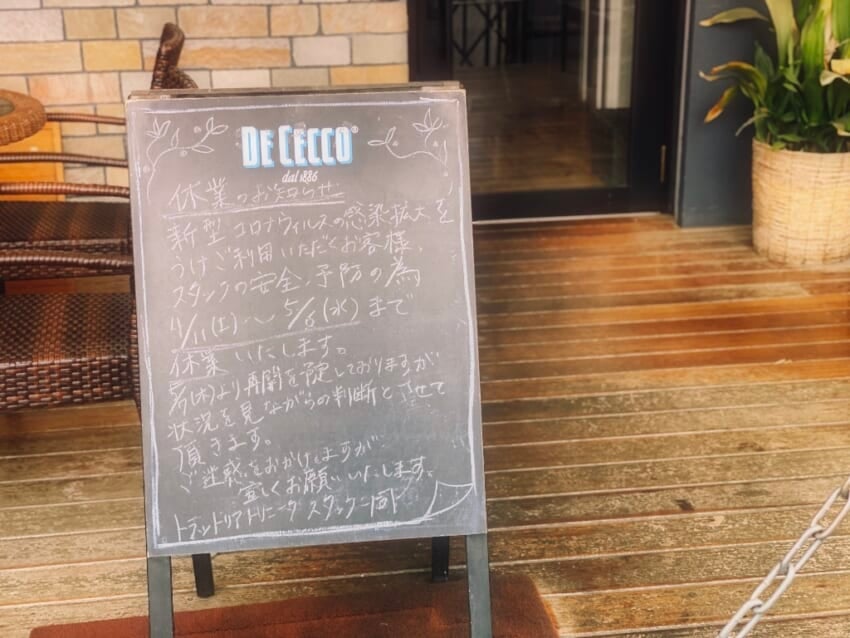 DE CECCO®
dal 1886
休業のお知らせ
新型コロナウィルスの感染拡大を
うけご利用いただくお客様、
スタッフの安全、予防の為
4/11(土)～5/6(水)まで
休業いたします。
5/7(木)より再開を予定しておりますが
状況を見ながらの判断とさせて
頂きます。
ご迷惑をおかけしますが
宜しくお願いいたします。
トラットリア トリニータ スタッフ一同